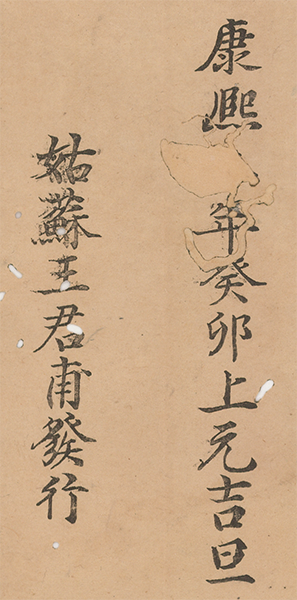 康熙年癸卯上元吉旦
姑蘇王君甫發行